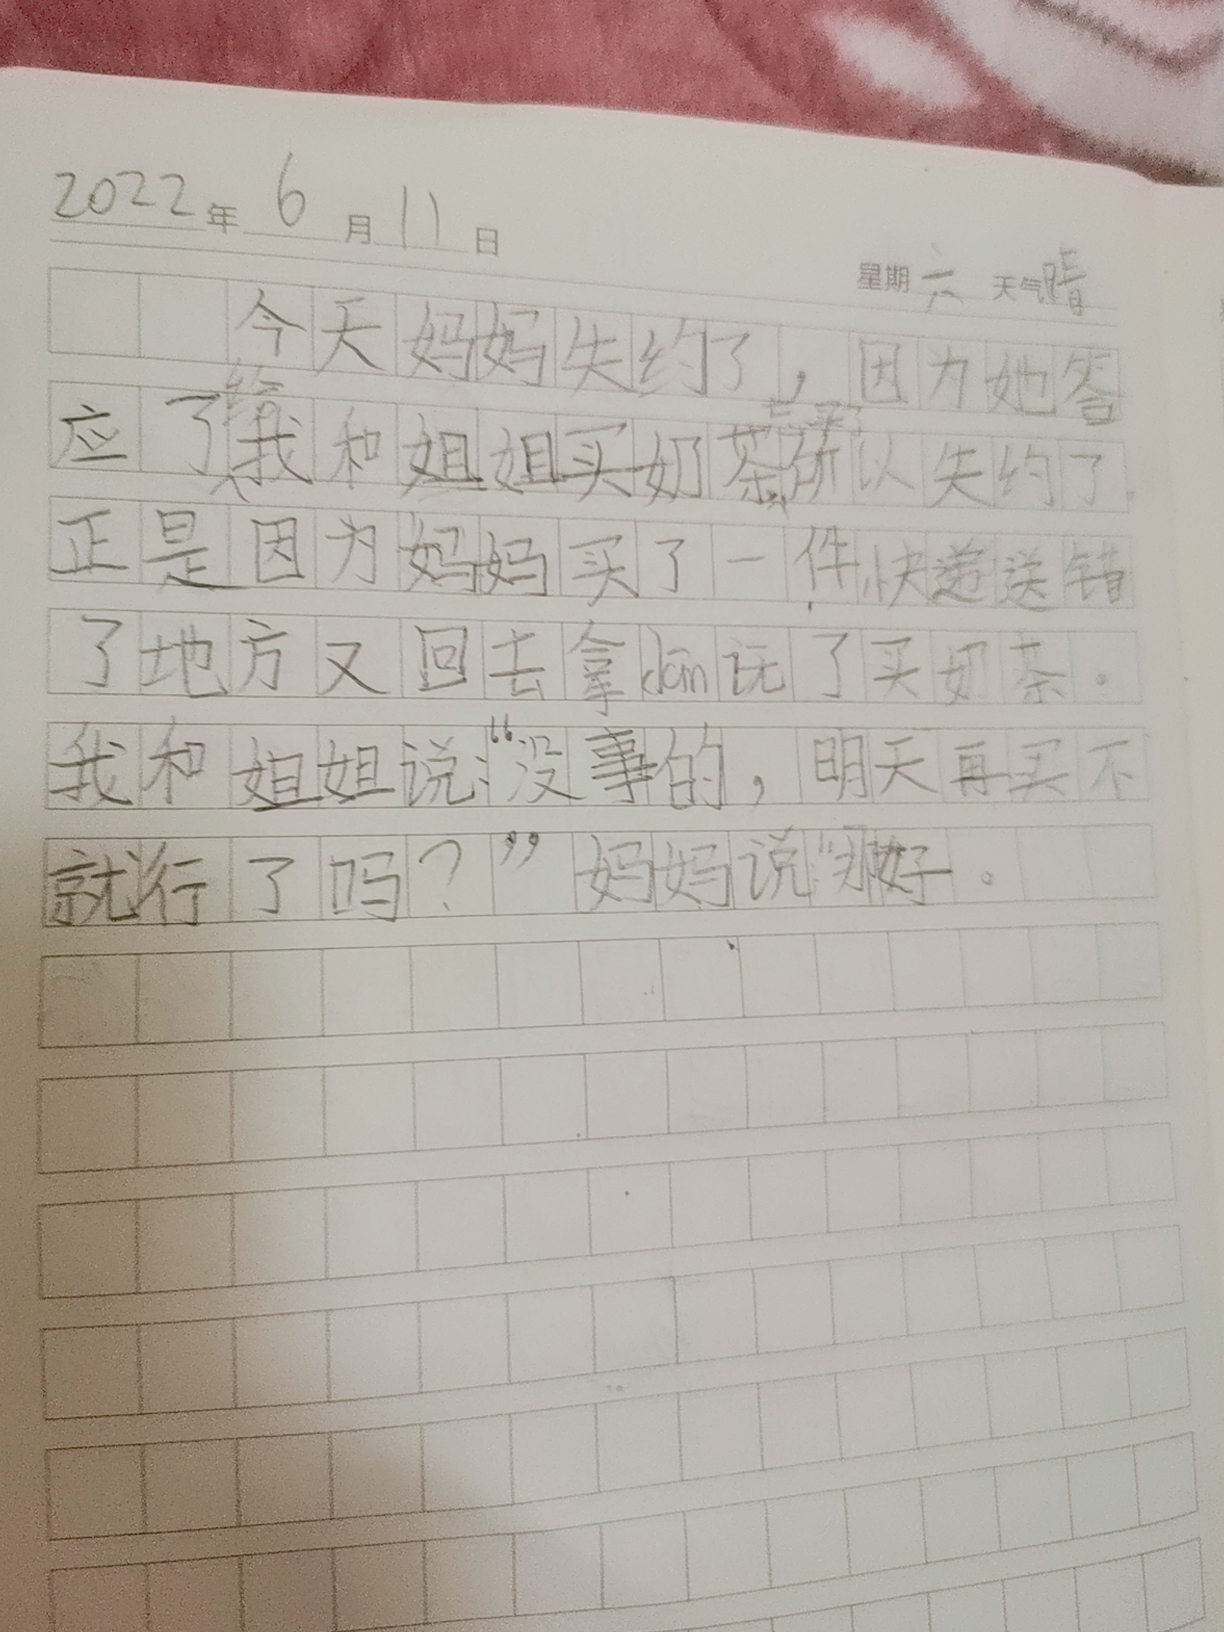 2022年6月11日
星期六 天气晴
今天妈妈失约了，因为她答
应了给我和姐姐买奶茶忘买了所以失约了。
正是因为妈妈买了一件快递送错
了地方又回去拿dān误了买奶茶。
我和姐姐说：“没事的，明天再买不
就行了吗？”妈妈说“那好。